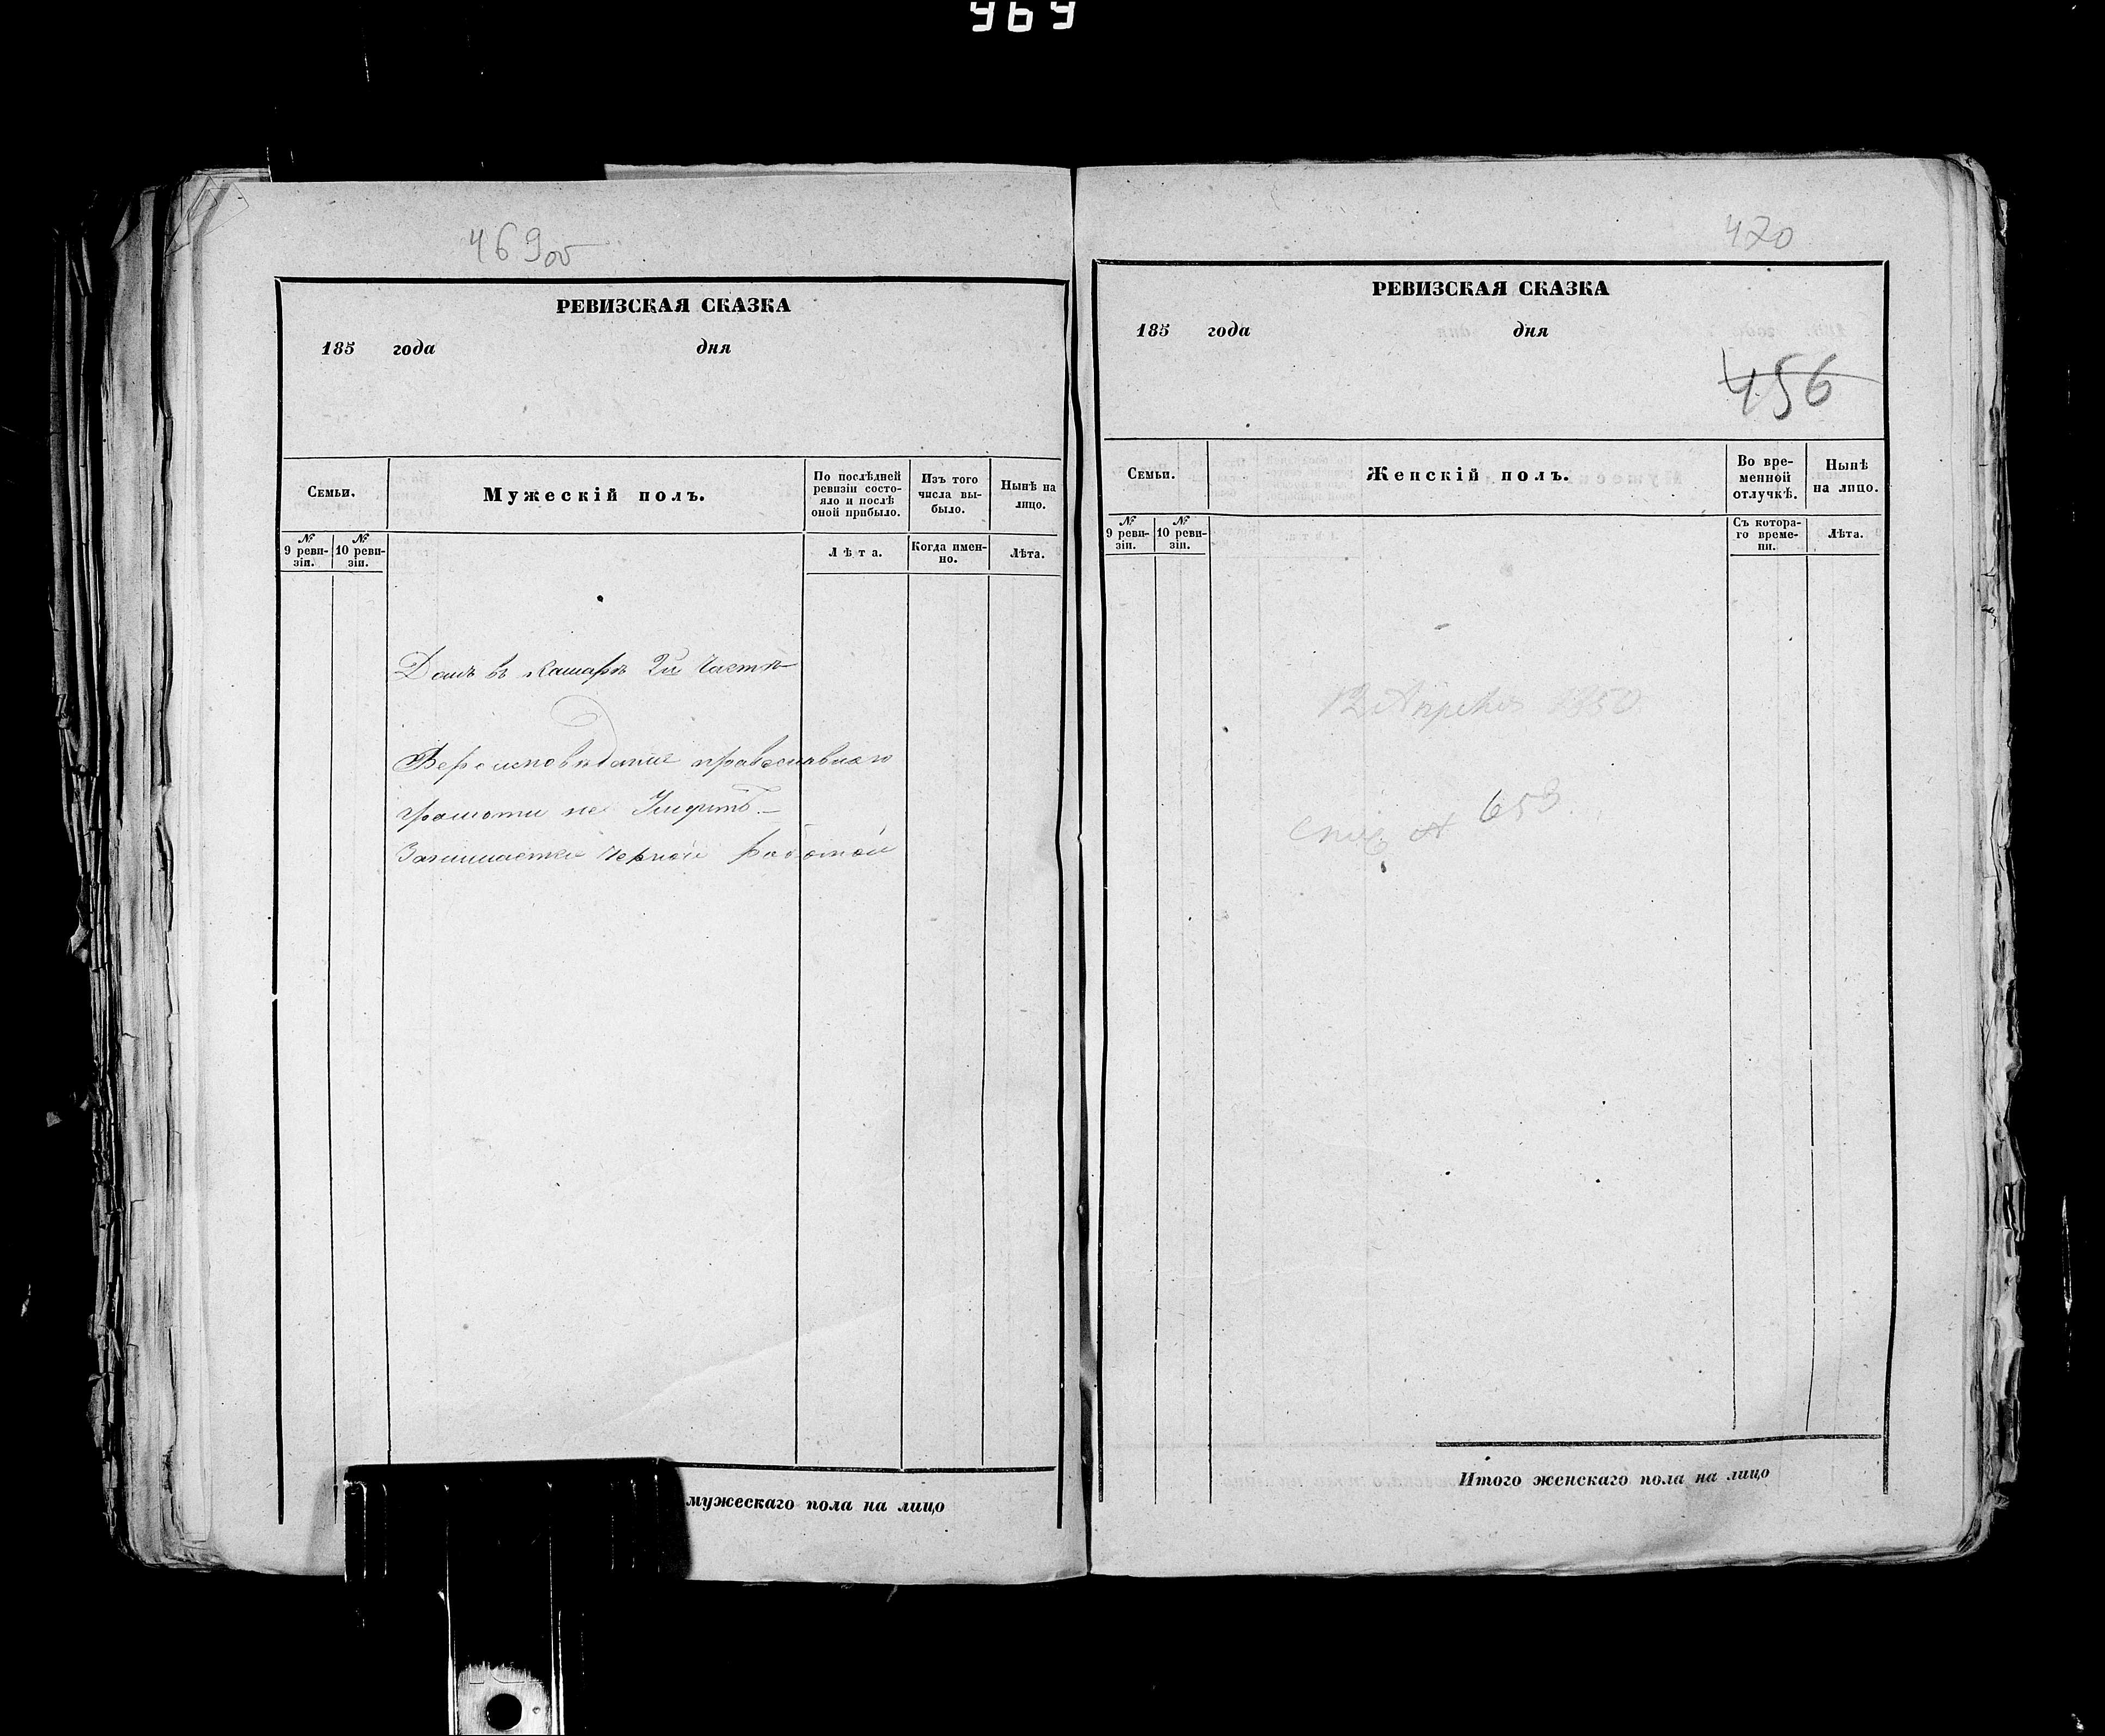 969
469об
РЕВИЗСКАЯ СКАЗКА
185 года дня
Семьи.
Мужескій полъ.
По послѣдней ревизіи состояло и послѣ оной прибыло.
Изъ того числа выбыло.
Нынѣ на лицо.
№ 9 ревизіи.
№ 10 ревизіи.
Лѣта.
Когда именно.
Лѣта.
Домъ въ Кашарѣ 2й Части
Вероисповѣданіе православнаго
грамоти не Умѣитъ.—
Занимается черной работой
мужескаго пола на лицо
470
РЕВИЗСКАЯ СКАЗКА
185 года дня
456
Семьи.
Женскій полъ.
Во временной отлучкѣ.
Нынѣ на лицо.
№ 9 ревизіи.
№ 10 ревизіи.
Съ котораго времени.
Лѣта.
12 Апреля 1850
№ 653.
Итого женскаго пола на лицо